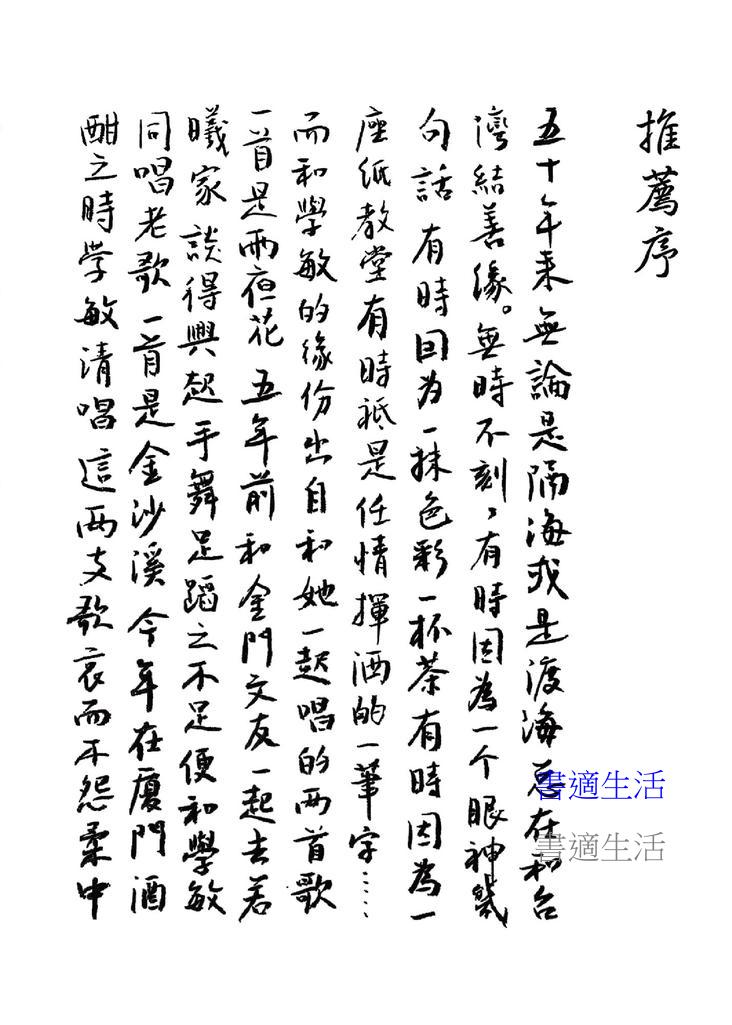 推薦序
五十年来無論是隔海或是渡海總在和台
灣結善緣。無時不刻，有時因為一个眼神幾
句話有時因为一抹色彩一杯茶有時因為一
座纸教堂有時祗是任情揮洒的一筆字……
而和學敏的緣份出自和她一起唱的两首歌
一首是雨夜花五年前和金門文友一起去若
曦家談得興起手舞足蹈之不足便和學敏
同唱老歌一首是金沙溪今年在厦門酒
酣之時学敏清唱這两支歌哀而不怨柔中
書適生活
書適生活